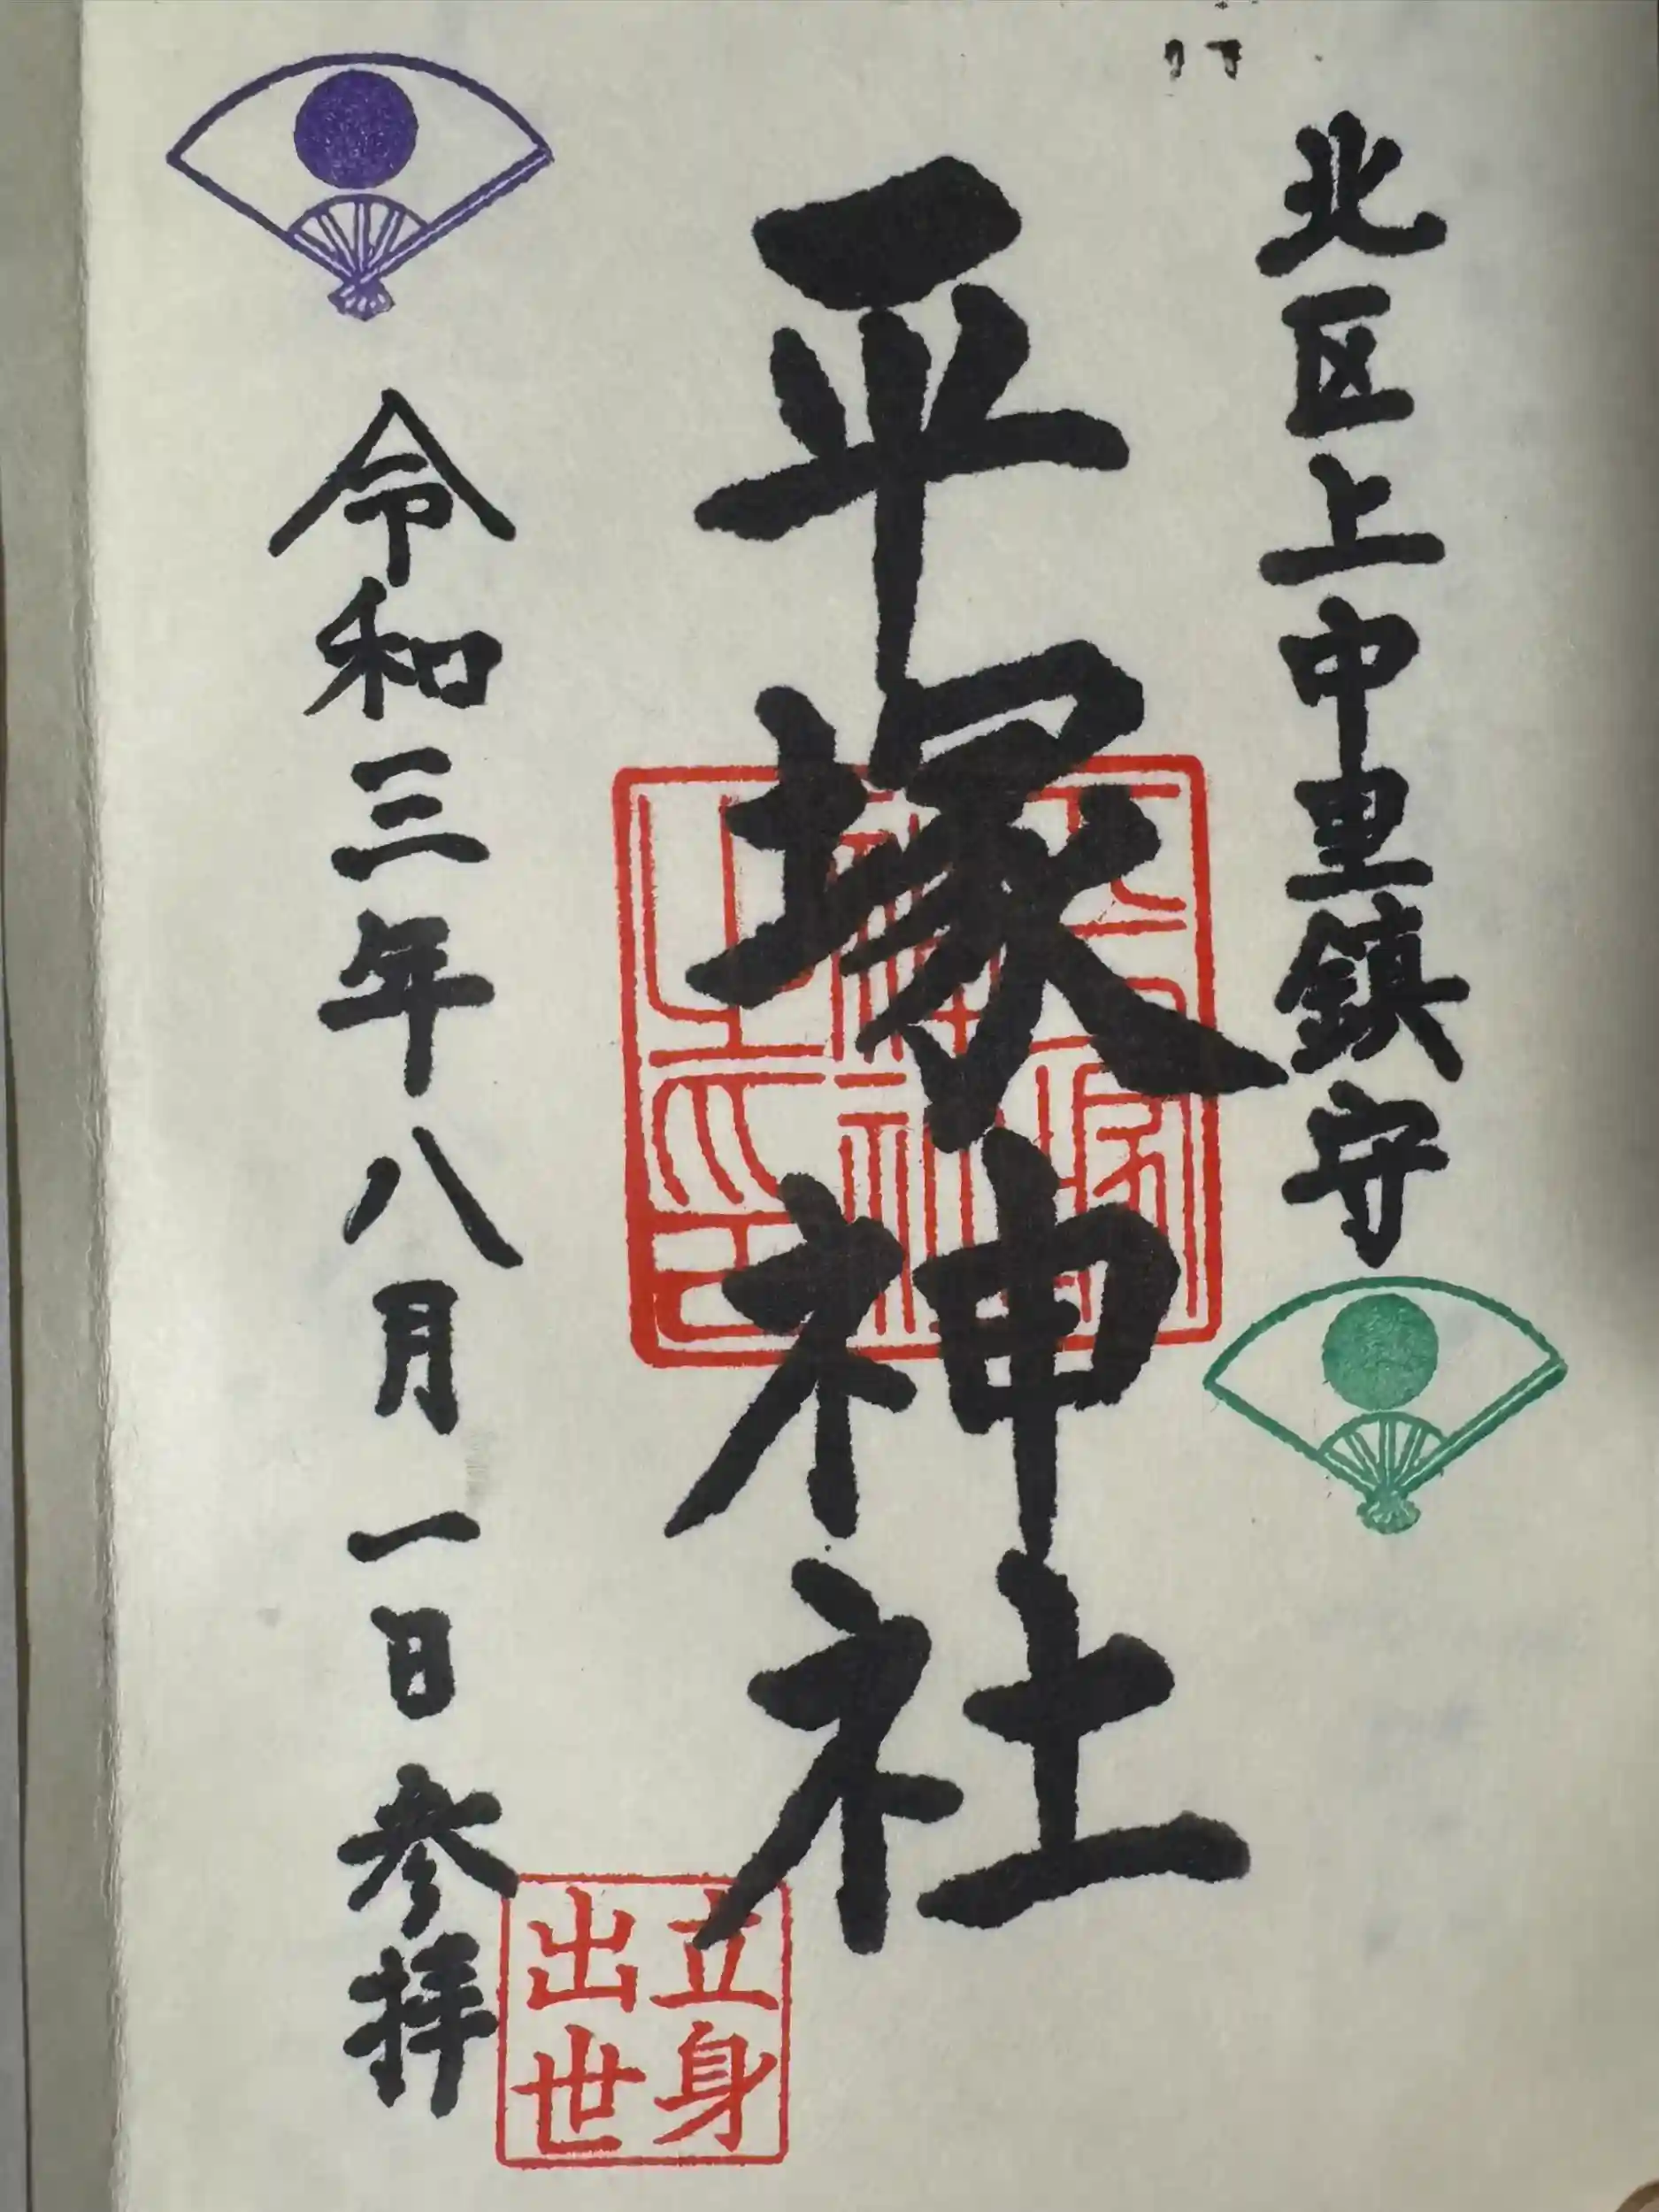 北区上中里鎮守
平塚神社
平塚神社之印
令和三年八月一日参拝
立身
出世